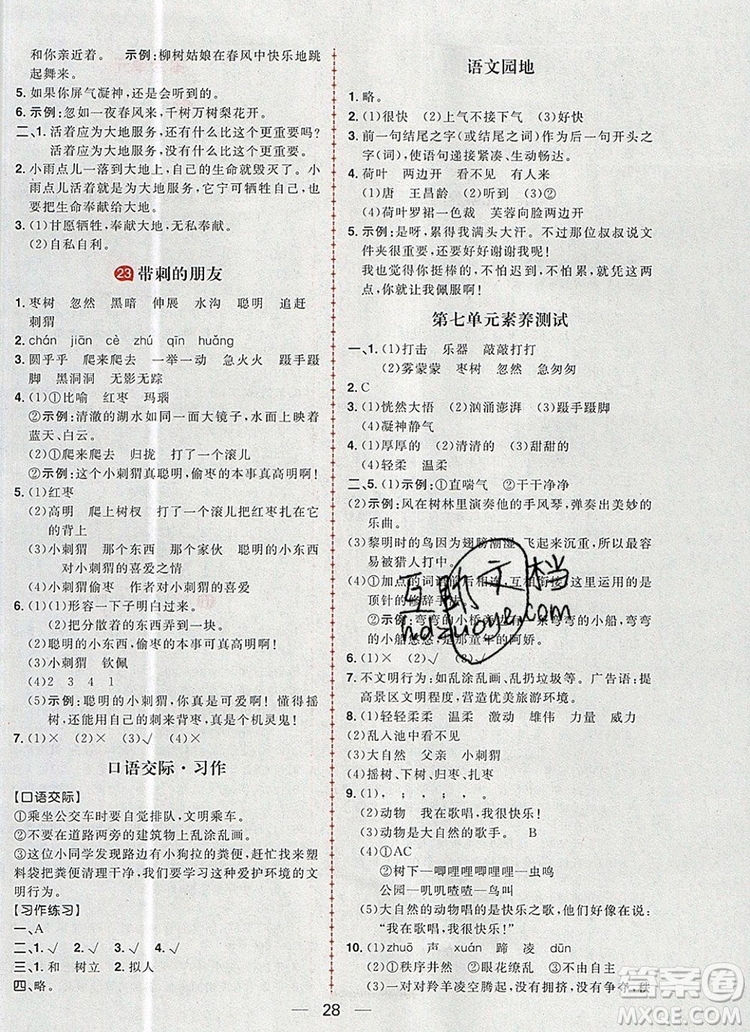 和你亲近着。 示例:柳树姑娘在春风中快乐地跳
起舞来。
5.如果你屏气凝神,就能够听到的。
6.示例:忽如一夜春风来,千树万树梨花开。
二、1.活着应为大地服务,还有什么比这个更重要吗?
活着应为大地服务,没有什么比这个更重要了。
2.小雨点儿一落到大地中,自己就被毁灭了。小
雨点儿活着就是为大地服务,它宁可牺牲自己,
把生命奉献给大地。
3.(1)甘愿牺牲、奉献大地、无私奉献。
(2)自私自利。
23 带刺的朋友
1.枣树 忽然 黑暗 伸展 水沟 聪明 追赶
刺猬
2.chán jiān cè zhú qīn huǎng
3.圆乎乎 爬来爬去 一举一动 急火火 蹑手蹑
脚 黑洞洞 无影无踪
4.(1)①比喻 红枣 玛瑙
②示例:清澈的湖水如同一面大镜子,映衬着
蓝天、白云。
(2)①爬来爬去 归拢 打了一个滚儿
②示例:这个小刺猬真聪明,偷枣的本事真高明啊!
5.(1)红枣
(2)高明 爬上树杈 扑打 打了一个滚儿
背着枣跑了
(3)小刺猬 那个东西 那个家伙 小东西
对小刺猬的喜爱之情
(4)小刺猬偷枣 作者对小刺猬的喜爱
6.(1)①形容一下子明白过来。
②把分散着的东西弄到一块。
(2)聪明的小东西,偷枣的本事可真高明啊!
(3)小刺猬 钦佩
(4)2 3 4 1
(5)示例:聪明的小刺猬,你真是可爱啊!懂得
用自己的刺来背枣,真是个机灵鬼!
7.(1)× (2)× (3)√ (4)×
口语交际·习作
【口语交际】
①乘坐公交车时要自觉排队,文明乘车。
②不要在道路两旁的建筑物上乱涂乱画。
③这位小同学发现路边有小狗拉的粪便,赶忙拿出塑
料袋把粪便清理干净,我们要学习这种爱护环境的文
明行为。
【习作练习】
一、A
二、1.√ 2.√ 3.√ 4.√
三、1.和 树立 2.拟人
四、略。
语文园地
1.略。
2.(1)很快 (2)上气不接下气 (3)好快
3.前一句结尾之字(或结尾之词)作后一句开头之
字(词),使语句递接紧凑、生动畅达。
4.荷叶 两边开 看不见 有人来
(1)唐 王昌龄 (2)听到
(4)荷叶罗裙一色裁 芙蓉向脸两边开
5.示例:是呀,累得我满头大汗。不过听老师说文
件夹很重要!要好好谢谢我呢!
我也觉得你挺棒的,不过你不怕困难、坚持不懈
的精神,也让我佩服啊!
第七单元素养测试
一、1.(1)打击 乐器 敲敲打打
(2)雾蒙蒙 枣树 忽然 急匆匆
2.C
3.(1)恍然大悟 (2)汹涌澎湃 (3)蹑手蹑脚
(4)凝神静气
4.(1)厚厚的 (2)清清的 (3)甜甜的
(4)轻柔 温柔
二、5.(1)示例:①直喘气 ②干干净净
(2)示例:风在树林里演奏他的手风琴,弹奏出美妙的
乐曲。
(3)黎明时的鸟因为翅膀潮湿,飞起来沉重,所以容
易被猎人打中。
(4)①加点的词语前后相连,互相衔接,这里运用的是
顶针的修辞手法。
②示例:弯弯的小桥荡悠悠,荡来弯弯的
小船悠悠,悠过童年里的阿娇。
6.(1)× (2)√ (3)√
7.不文明行为:如乱涂乱画、乱扔垃圾等。 广告语:提
高景区文明程度,营造优美旅游环境。
8.(1)轻轻柔柔 温柔 激动 雄伟 力量 威力
(2)乱入池中看不见
(3)大自然 父亲 小刺猬
(4)摇树、打枣、归枣、扎枣、驮枣
9.(1), ; , ; 。
(2)动物 我在歌唱,我很快乐
(3)动物是大自然的歌手。 B
(4)①AC
②树下—唧哩哩唧哩哩—虫鸣
公园—叽叽喳喳—鸟叫
(5)大自然的动物唱的是快乐之歌,它们好像在说:
“我在歌唱,我很快乐!”
10.(1)zhuō 声 xuán 蹄 凌 dūn
(2)①秩序井井 ②眼花缭乱
(3)一对对羚羊凌空腾起,没有拥挤,没有争夺,秩
28
互助文档
hdzuoye.com
答案圈
MXQE.COM